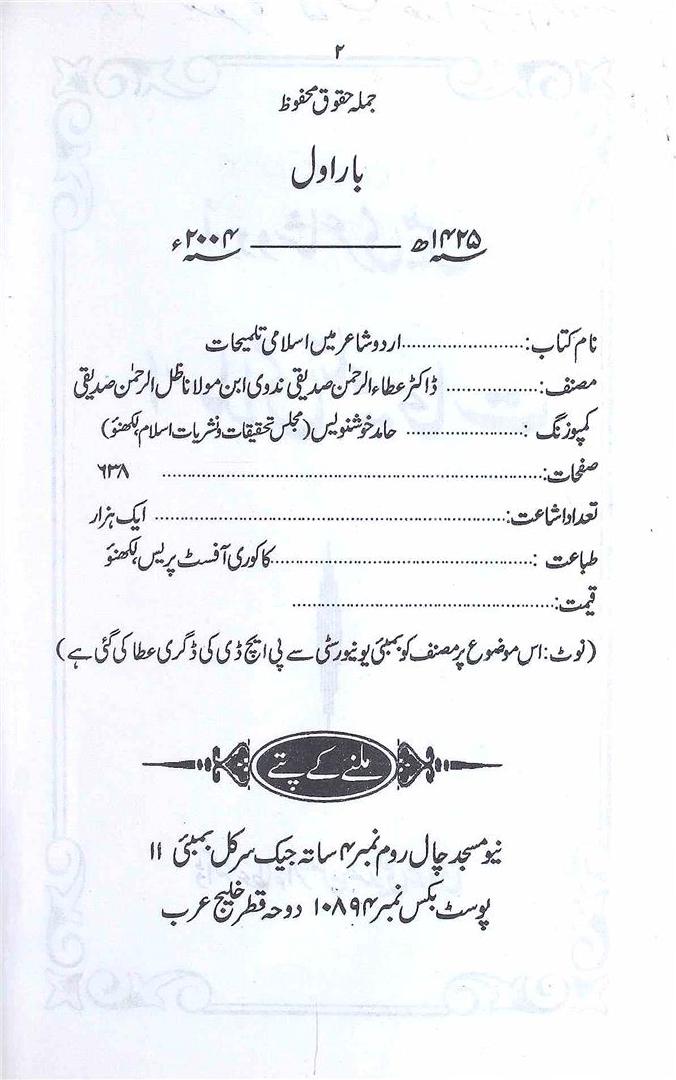 ۲
جملہ حقوق محفوظ
بار اول
۱۴۲۵ھ ــــــــــــــــ ۲۰۰۴ء
نام کتاب:........................اردو شاعر میں اسلامی تلمیحات
مصنف:.................. ڈاکٹر عطاء الرحمٰن صدیقی ندوی ابن مولانا ظل الرحمٰن صدیقی
کمپوزنگ :....................... حامد خوشنویس (مجلس تحقیقات و نشریات اسلام، لکھنؤ)
صفحات:........................................................................ ۶۳۸
تعداد اشاعت:...................................................................... ایک ہزار
طباعت :....................................................کاکوری آفسٹ پریس، لکھنؤ
قیمت:....................................................
(نوٹ: اس موضوع پر مصنف کو بمبئی یونیورسٹی سے پی ایچ ڈی کی ڈگری عطا کی گئی ہے)
ملنے کے پتے
نیو مسجد چال روم نمبر ۴ ساتھ جیک سرکل بمبئی ۱۱
پوسٹ بکس نمبر ۱۰۸۹۴ دوحہ قطر خلیج عرب